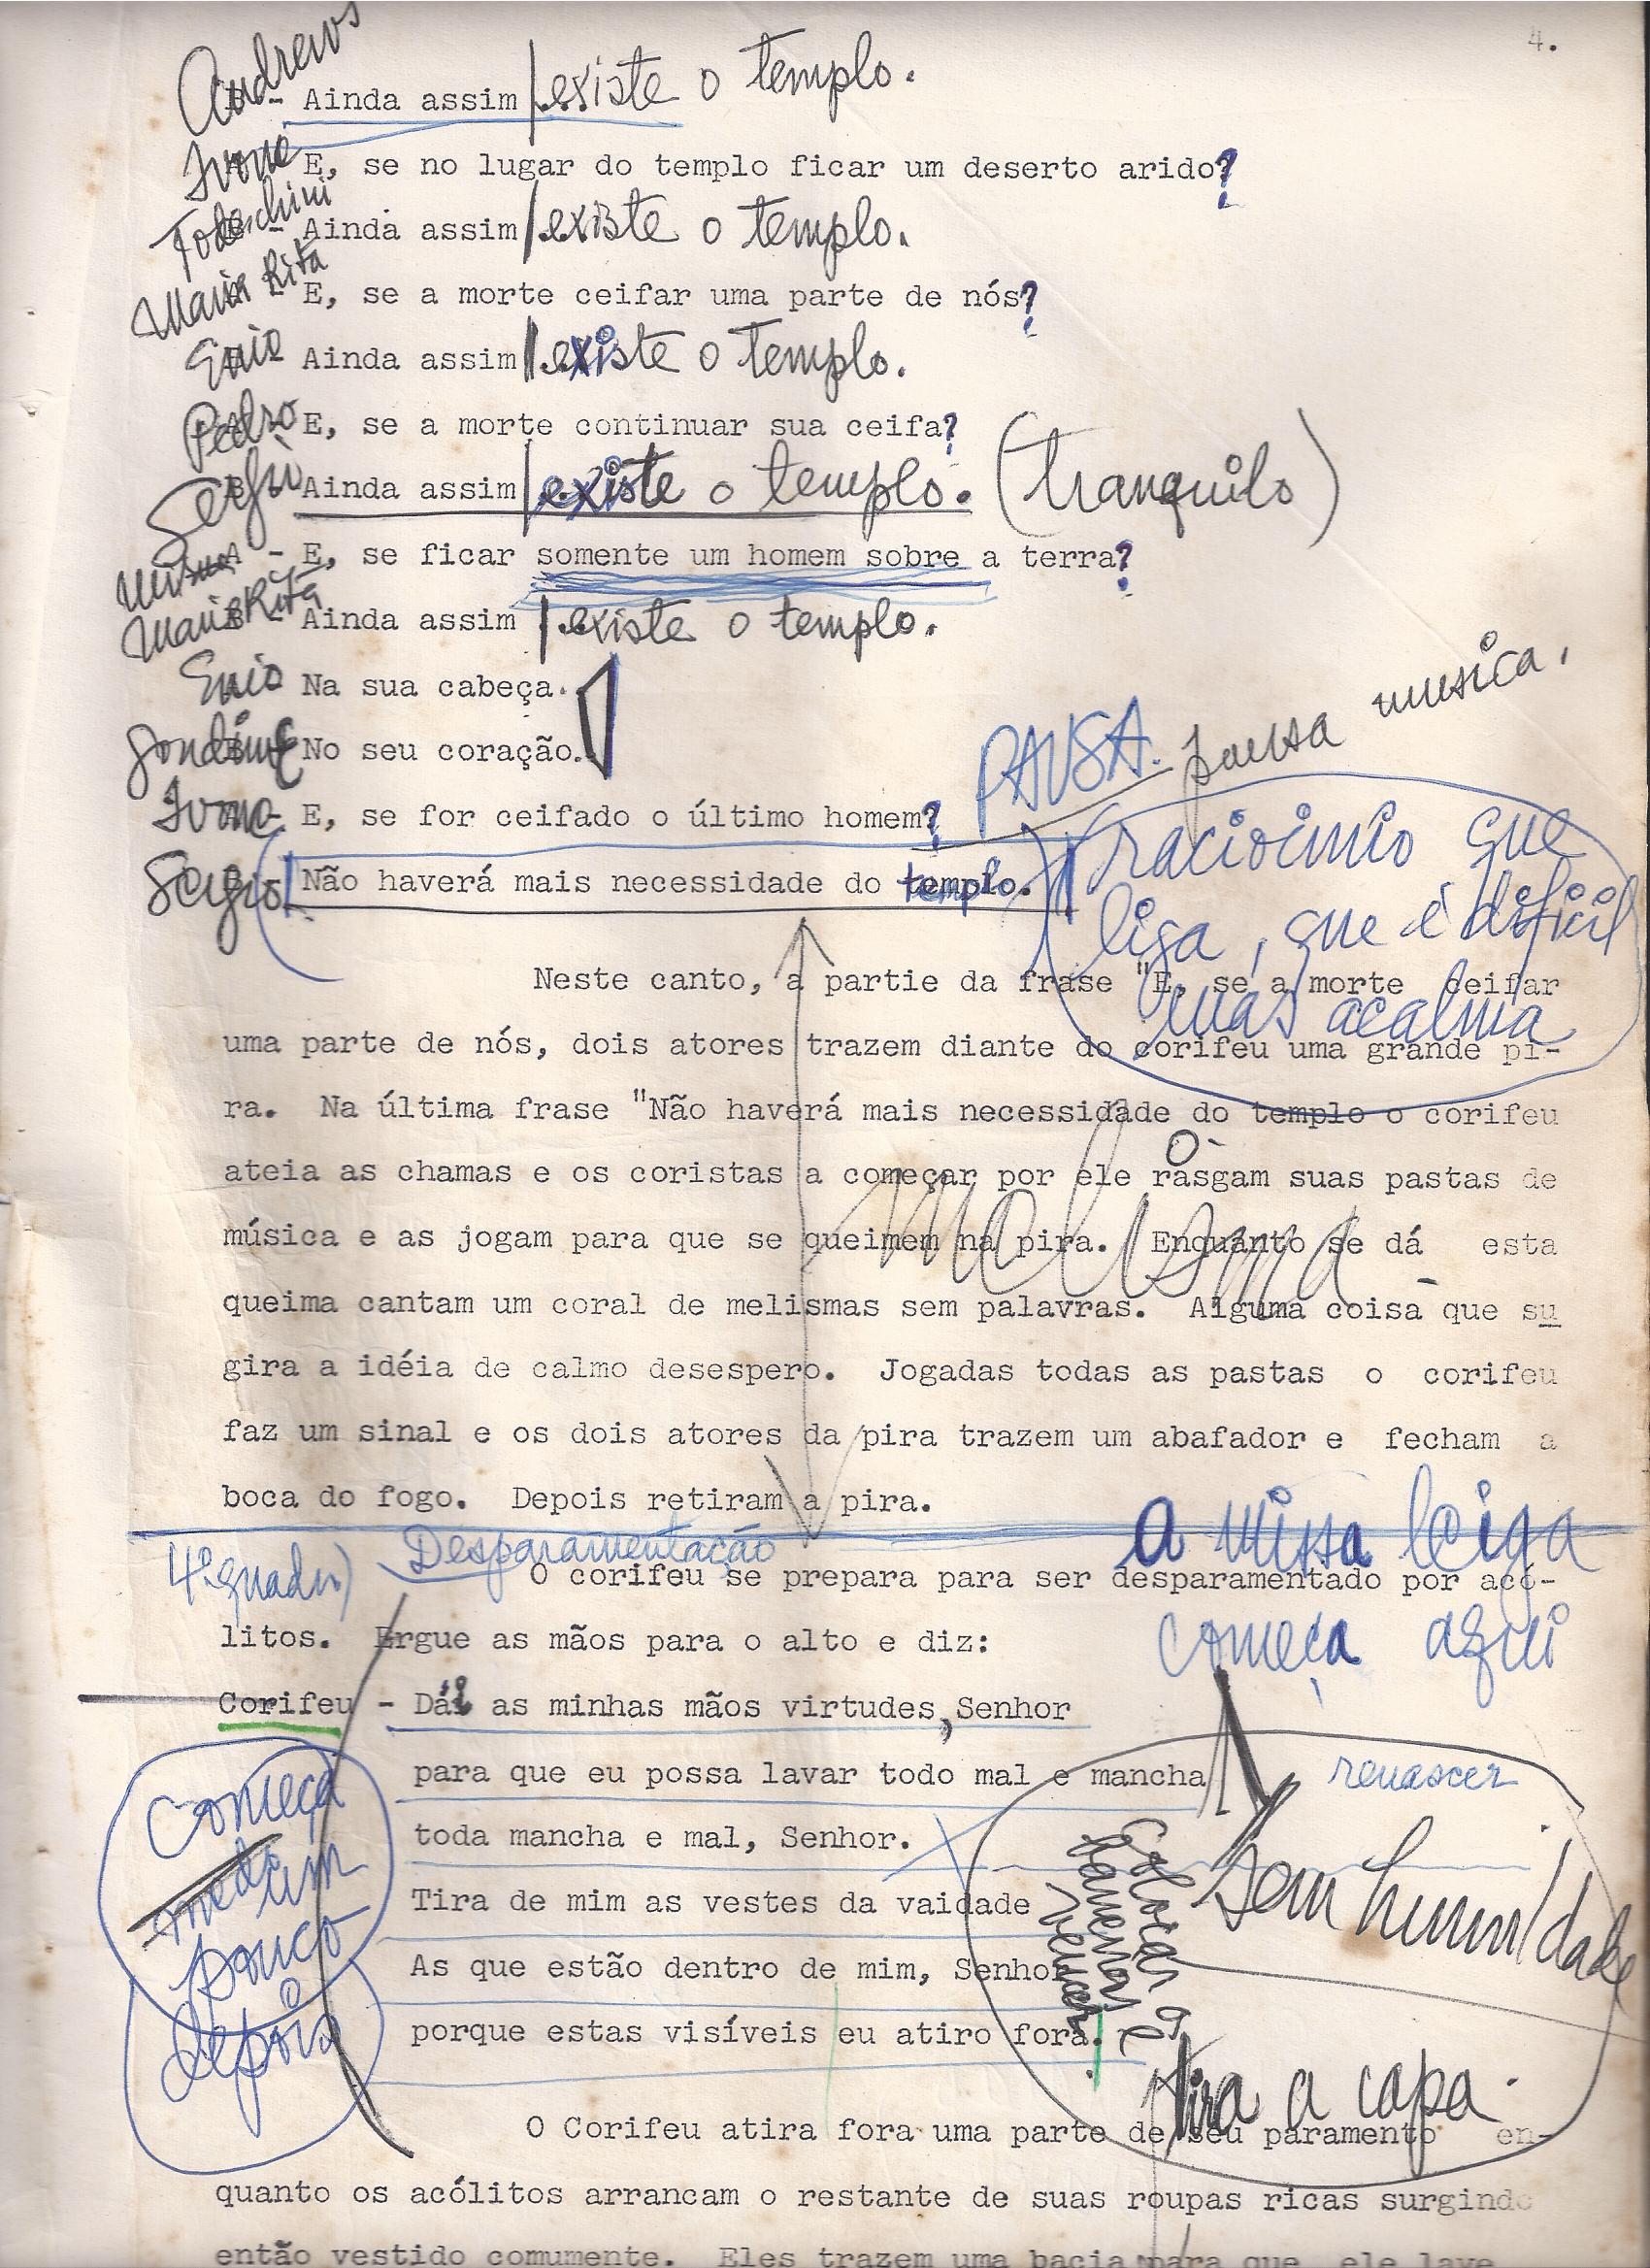 4.
Andrews - Ainda assim existe o templo.
Ivone E, se no lugar do templo ficar um deserto arido?
Todeschini Ainda assim existe o templo.
Maria Rita E, se a morte ceifar uma parte de nós?
Enio Ainda assim existe o templo.
Pedro E, se a morte continuar sua ceifa?
Sergio Ainda assim existe o templo. (tranquilo)
A - E, se ficar somente um homem sobre a terra?
Maria Rita Ainda assim existe o templo.
Enio Na sua cabeça.
No seu coração.
PAUSA. pausa musica.
Ivone E, se for ceifado o último homem?
Sergio Não haverá mais necessidade do templo.
raciocinio que
liga, que é dificil
mas acalma
Neste canto, a partie da frase "E, se a morte ceifar
uma parte de nós, dois atores trazem diante do corifeu uma grande pi-
ra. Na última frase "Não haverá mais necessidade do templo o corifeu
ateia as chamas e os coristas a começar por ele rasgam suas pastas de
música e as jogam para que se queimem na pira. Enquanto se dá esta
melisma
queima cantam um coral de melismas sem palavras. Alguma coisa que su
gira a idéia de calmo desespero. Jogadas todas as pastas o corifeu
faz um sinal e os dois atores da pira trazem um abafador e fecham a
boca do fogo. Depois retiram a pira.
a missa leiga
começa aqui
4º quadro) Desparamentação
O corifeu se prepara para ser desparamentado por acó-
litos. Ergue as mãos para o alto e diz:
Corifeu - Dái as minhas mãos virtudes, Senhor
para que eu possa lavar todo mal e mancha
renascer
toda mancha e mal, Senhor.
Tira de mim as vestes da vaidade
As que estão dentro de mim, Senhor
porque estas visíveis eu atiro fora.
Começa
um
pouco
depois
Sem humildade
tira a capa.
O Corifeu atira fora uma parte de seu paramento en-
quanto os acólitos arrancam o restante de suas roupas ricas surgindo
então vestido comumente. Eles trazem uma bacia para que ele lave